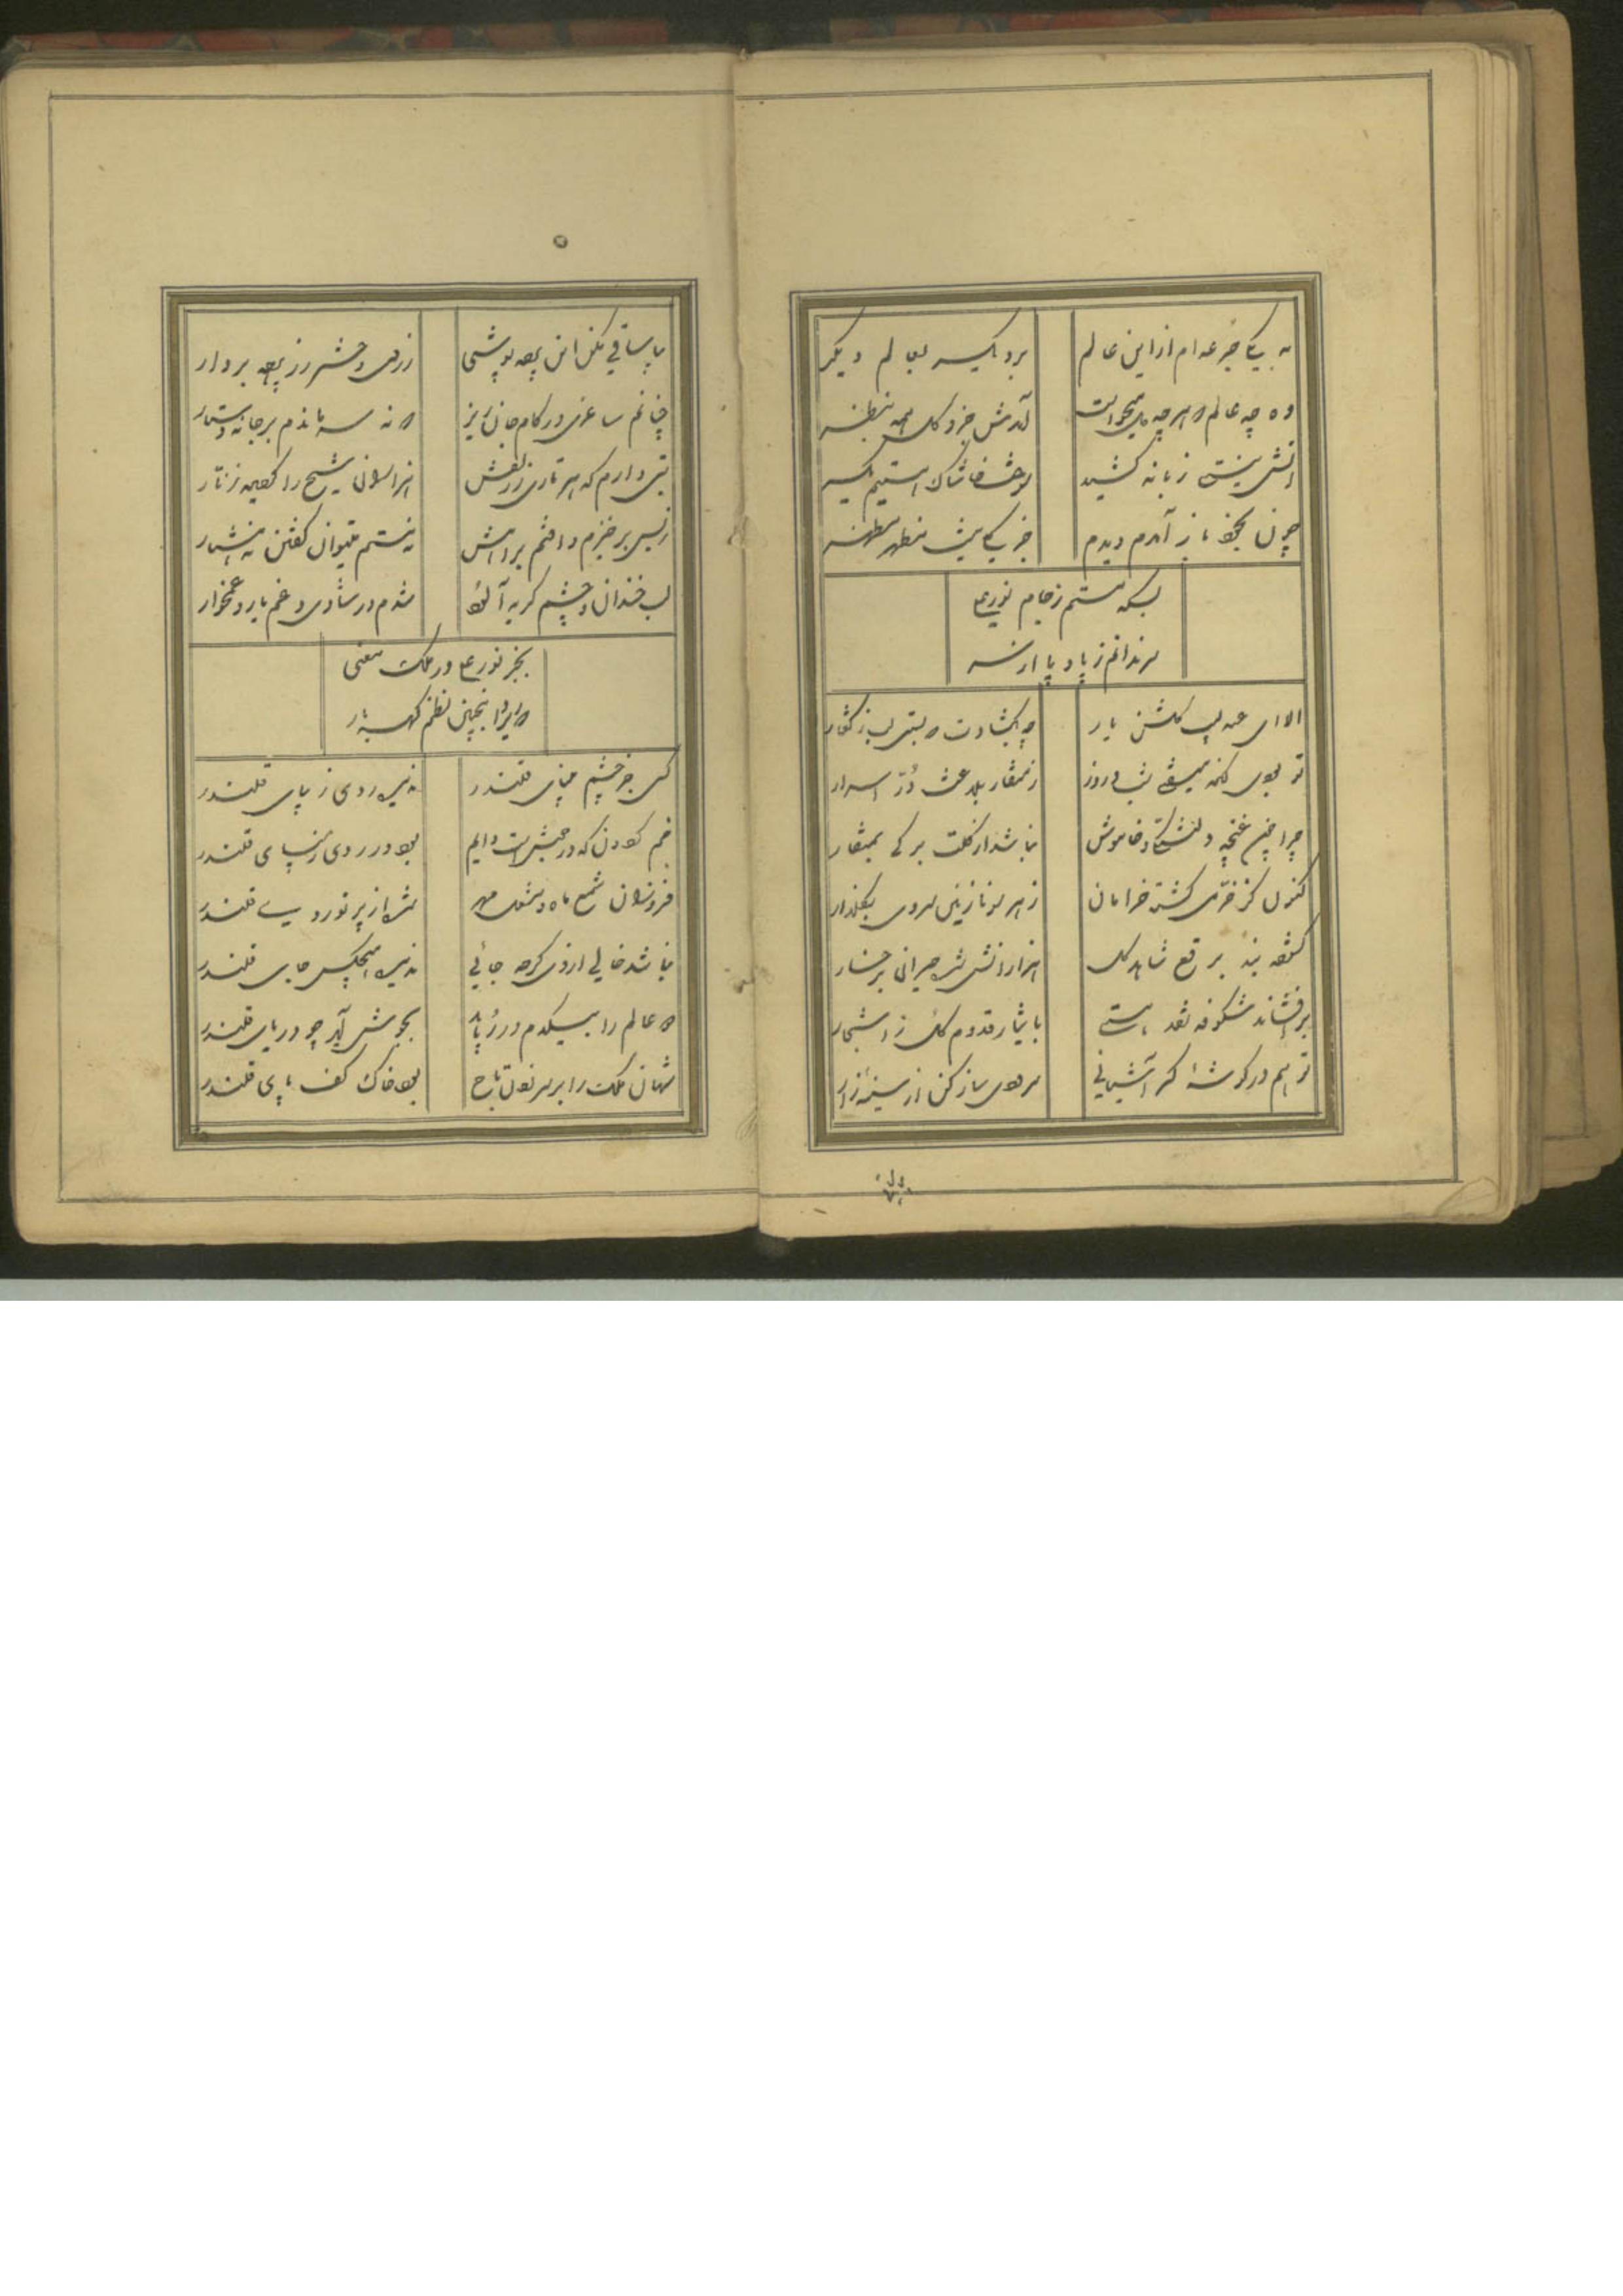 به یک جرعه ام از این عالم
برد یکسر بعالم دیگر
وه چه عالم که هر چه میخواست
آمدش جزو کل همه بنظر
آتش نیستی زبانه کشید
سوخت خاشاک هستیم یکسر
چون بخود باز آمدم دیدم
جز یکی نیست منظر
بسکه مستم ز جام نورعلی
سر ندانم ز پا و پا از سر
الا ای عندلیب گلشن یار
چه بگشادت که بستی لب ز گفتار
تو بودی کز شب و روز
ز منقار بلاغت دُرّ اسرار
چرا چون غنچه دلتنگی و خاموش
نباشد از گلت برگی بمنقار
کنون کز خرمی گشته خرامان
ز هر سو نازنین سروی بگلزار
گشوده بند برقع شاهد گل
هزارانش شده حیران رخسار
برافشاند شکوفه نقد هستی
بایثار قدوم گل ز اشجار
تو هم در گوشه گیر آشیانی
سرودی ساز کن از سینه زار
بیا ساقی مکن این پرده پوشی
ز روی دختر رز پرده بردار
چنانم ساغری در کام جان ریز
که نه سر ماندم بر جا نه دستار
بتی دارم که هر تاری ز زلفش
هزاران شیخ را گردیده زنار
ز بس برخیزم و افتم براهش
نه مستم میتوان گفتن نه هشیار
لب خندان و چشم گریه آلود
شدم در شادی و غم یار و غمخوار
بجز نورعلی در ملک معنی
که اینچنین نظم گهربار
کسی جز چشم بینای قلندر
ندیده روی زیبای قلندر
خم گردون که در جنبش است دایم
بود دردی ز مینای قلندر
فروزان شمع ماه و مشعل مهر
شد از پرتو روی قلندر
نباشد خالی از وی گرچه جائی
ندیده هیچکس جای قلندر
که عالم را بیکدم در رباید
بجوش آید چو دریای قلندر
شهان ملک را بر سر بود تاج
بود خاک کف پای قلندر